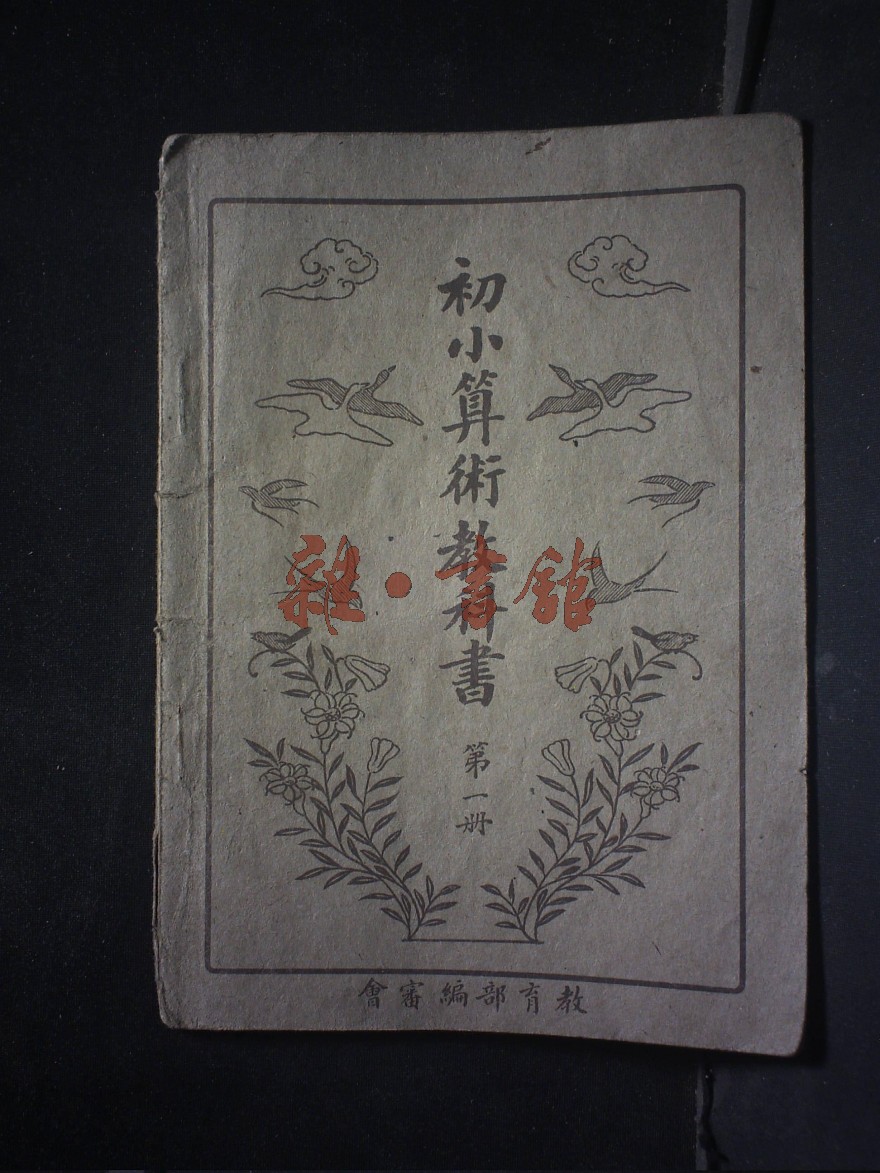 初小算術教科書
第一册
教育部編審會
雜·書館